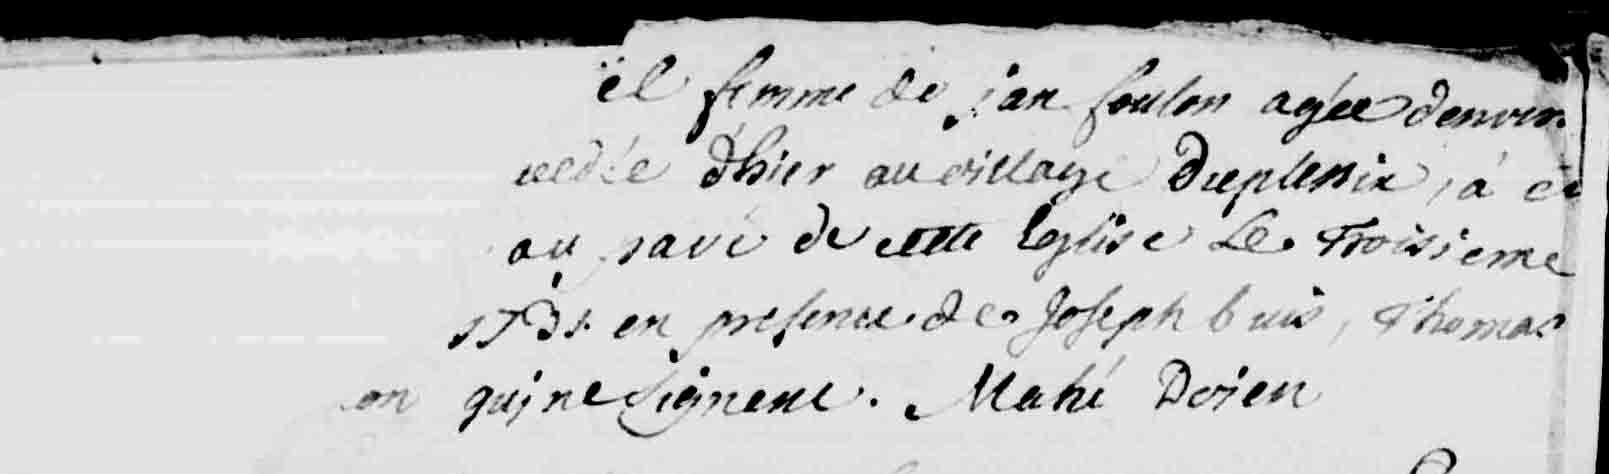 ël femme de jan foulon agée denvir
cedée d'hier au village duplessix, à é
au pavé de cette Eglise Le Troisieme
1731 en presence de Joseph buis, Thomas
on qui ne signent. Mahé Doien